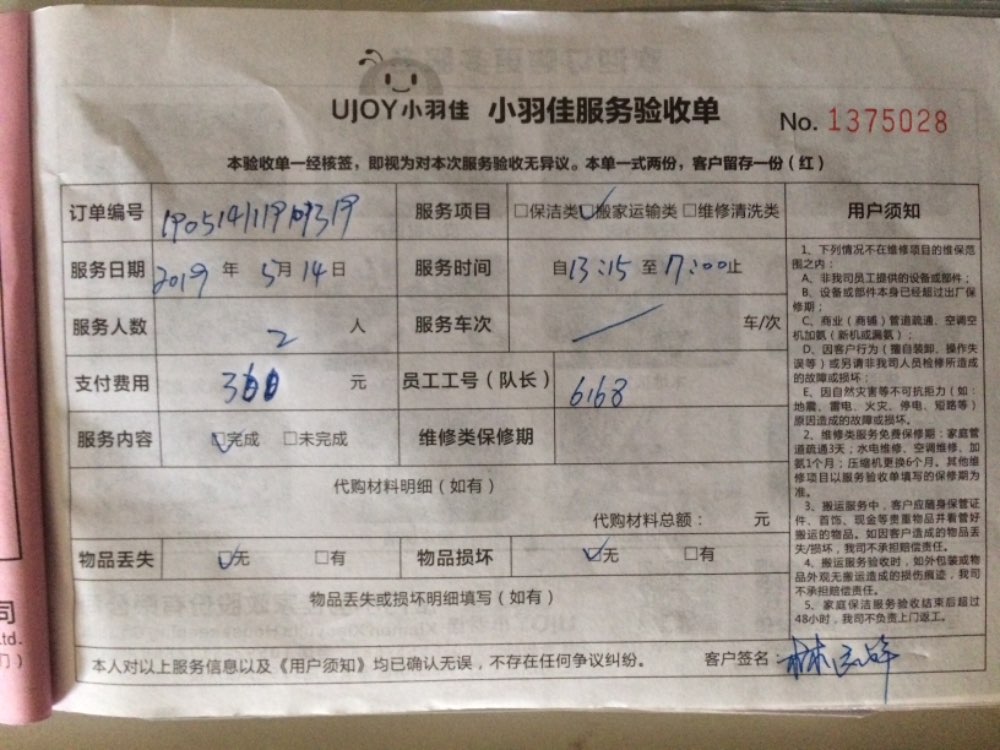 UJOY小羽佳 小羽佳服务验收单
No. 1375028
本验收单一经核签，即视为对本次服务验收无异议。本单一式两份，客户留存一份（红）
订单编号
服务项目 □保洁类 □搬家运输类 □维修清洗类
服务日期 2019 年 5月 14 日
服务时间 自13:15 至 17:00止
服务人数 2 人
服务车次 车/次
支付费用 300 元
员工工号（队长） 6168
服务内容 □完成 □未完成
维修类保修期
代购材料明细（如有）
代购材料总额： 元
物品丢失 □无 □有
物品损坏 □无 □有
物品丢失或损坏明细填写（如有）
本人对以上服务信息以及《用户须知》均已确认无误，不存在任何争议纠纷。 客户签名：
用户须知
1、下列情况不在维修项目的维保范
围之内：
A、非我司员工提供的设备或部件；
B、设备或部件本身已经超过出厂保
修期；
C、商业（商铺）管道疏通、空调空
机加氨（新机或漏氨）；
D、因客户行为（擅自装卸、操作失
误等）或另请非我司人员检修所造成
的故障或损坏；
E、因自然灾害等不可抗拒力（如：
地震、雷电、火灾、停电、短路等）
原因造成的故障或损坏。
2、维修类服务免费保修期：家庭管
道疏通3天；水电维修、空调维修、加
氨1个月；压缩机更换6个月。其他维
修项目以服务验收单填写的保修期为
准。
3、搬运服务中，客户应随身保管证
件、首饰、现金等贵重物品并看管好
搬运的物品。如因客户造成的物品丢
失/损坏，我司不承担赔偿责任。
4、搬运服务验收时，如外包装或物
品外观无搬运造成的损伤痕迹，我司
不承担赔偿责任。
5、家庭保洁服务验收结束后超过
48小时，我司不负责上门返工。
司
Ltd.
门）